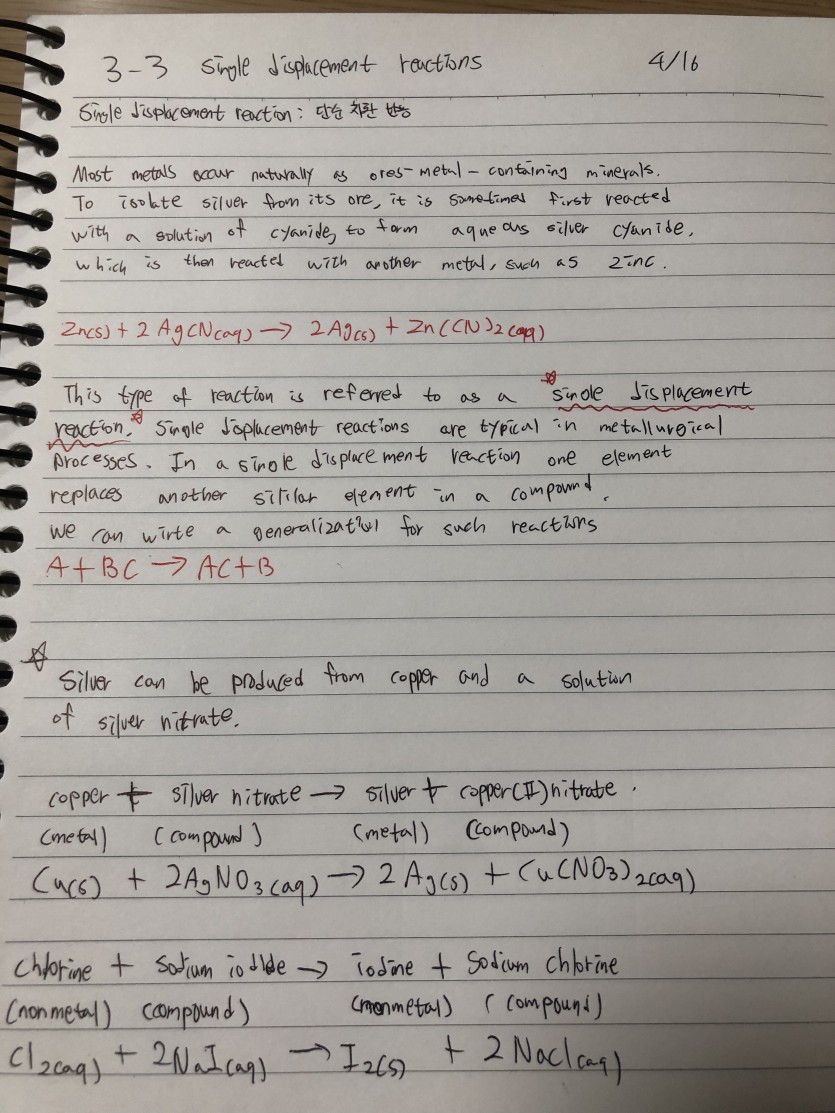 3-3 Single displacement reactions 4/16
Single displacement reaction: 단순 치환 반응
Most metals occur naturally as ores-metal-containing minerals.
To isolate silver from its ore, it is sometimes first reacted
with a solution of cyanide, to form aqueous silver cyanide,
which is then reacted with another metal, such as zinc.
Zn(s) + 2 AgCN(aq) → 2Ag(s) + Zn(CN)2(aq)
This type of reaction is referred to as a ☆single displacement
reaction.☆ Single displacement reactions are typical in metallurgical
processes. In a single displacement reaction one element
replaces another sitilar element in a compound.
We can wirte a generalization for such reactions
A + BC → AC + B
☆
Silver can be produced from copper and a solution
of silver nitrate.
copper + silver nitrate → silver + copper(II)nitrate.
(metal) (compound) (metal) (compound)
Cu(s) + 2AgNO3(aq) → 2 Ag(s) + Cu(NO3)2(aq)
Chlorine + Sodium iodide → iodine + Sodium chlorine
(nonmetal) (compound) (nonmetal) (compound)
Cl2(aq) + 2NaI(aq) → I2(s) + 2 Nacl(aq)